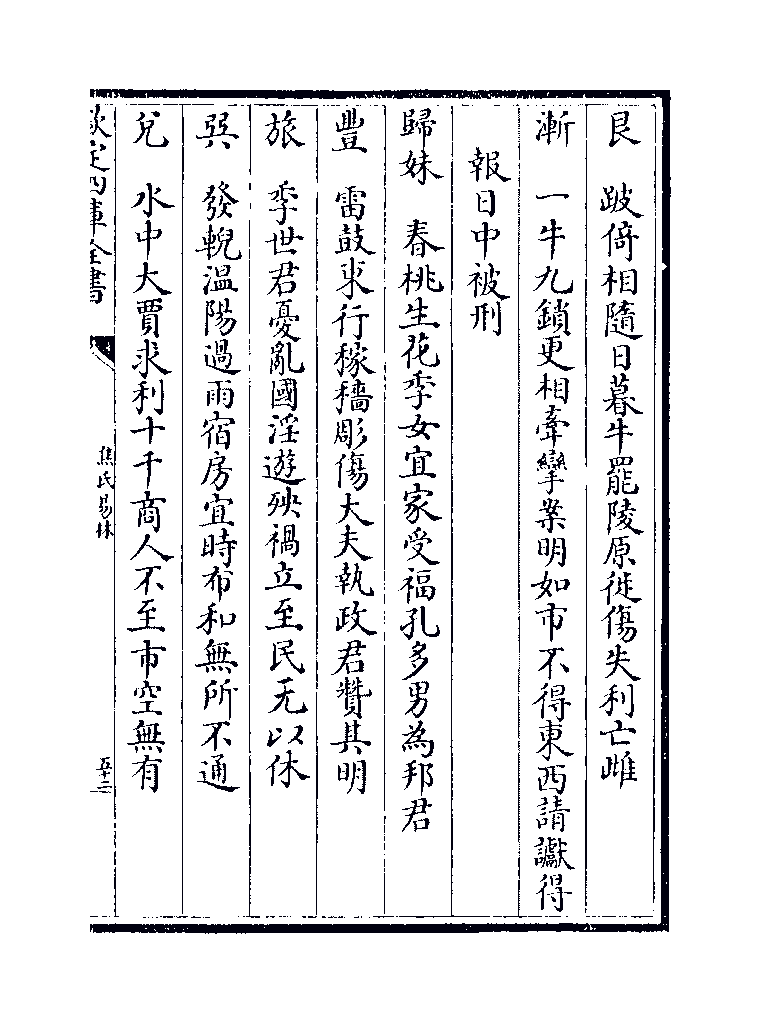 艮　跛倚相隨日暮牛罷陵原徙傷失利亡雌
漸　一牛九鎖更相牽攣案明如市不得東西請讞得
報日中被刑
歸妹　春桃生花季女宜家受福孔多男為邦君
豐　雷鼓東行稼穡彫傷大夫執政君贊其明
旅　季世君憂亂國淫遊殃禍立至民无以休
㢲　發輗溫陽過雨宿房宜時布和無所不通
兌　水中大賈求利十千商人不至市空無有
欽定四庫全書
焦氏易林
五十二